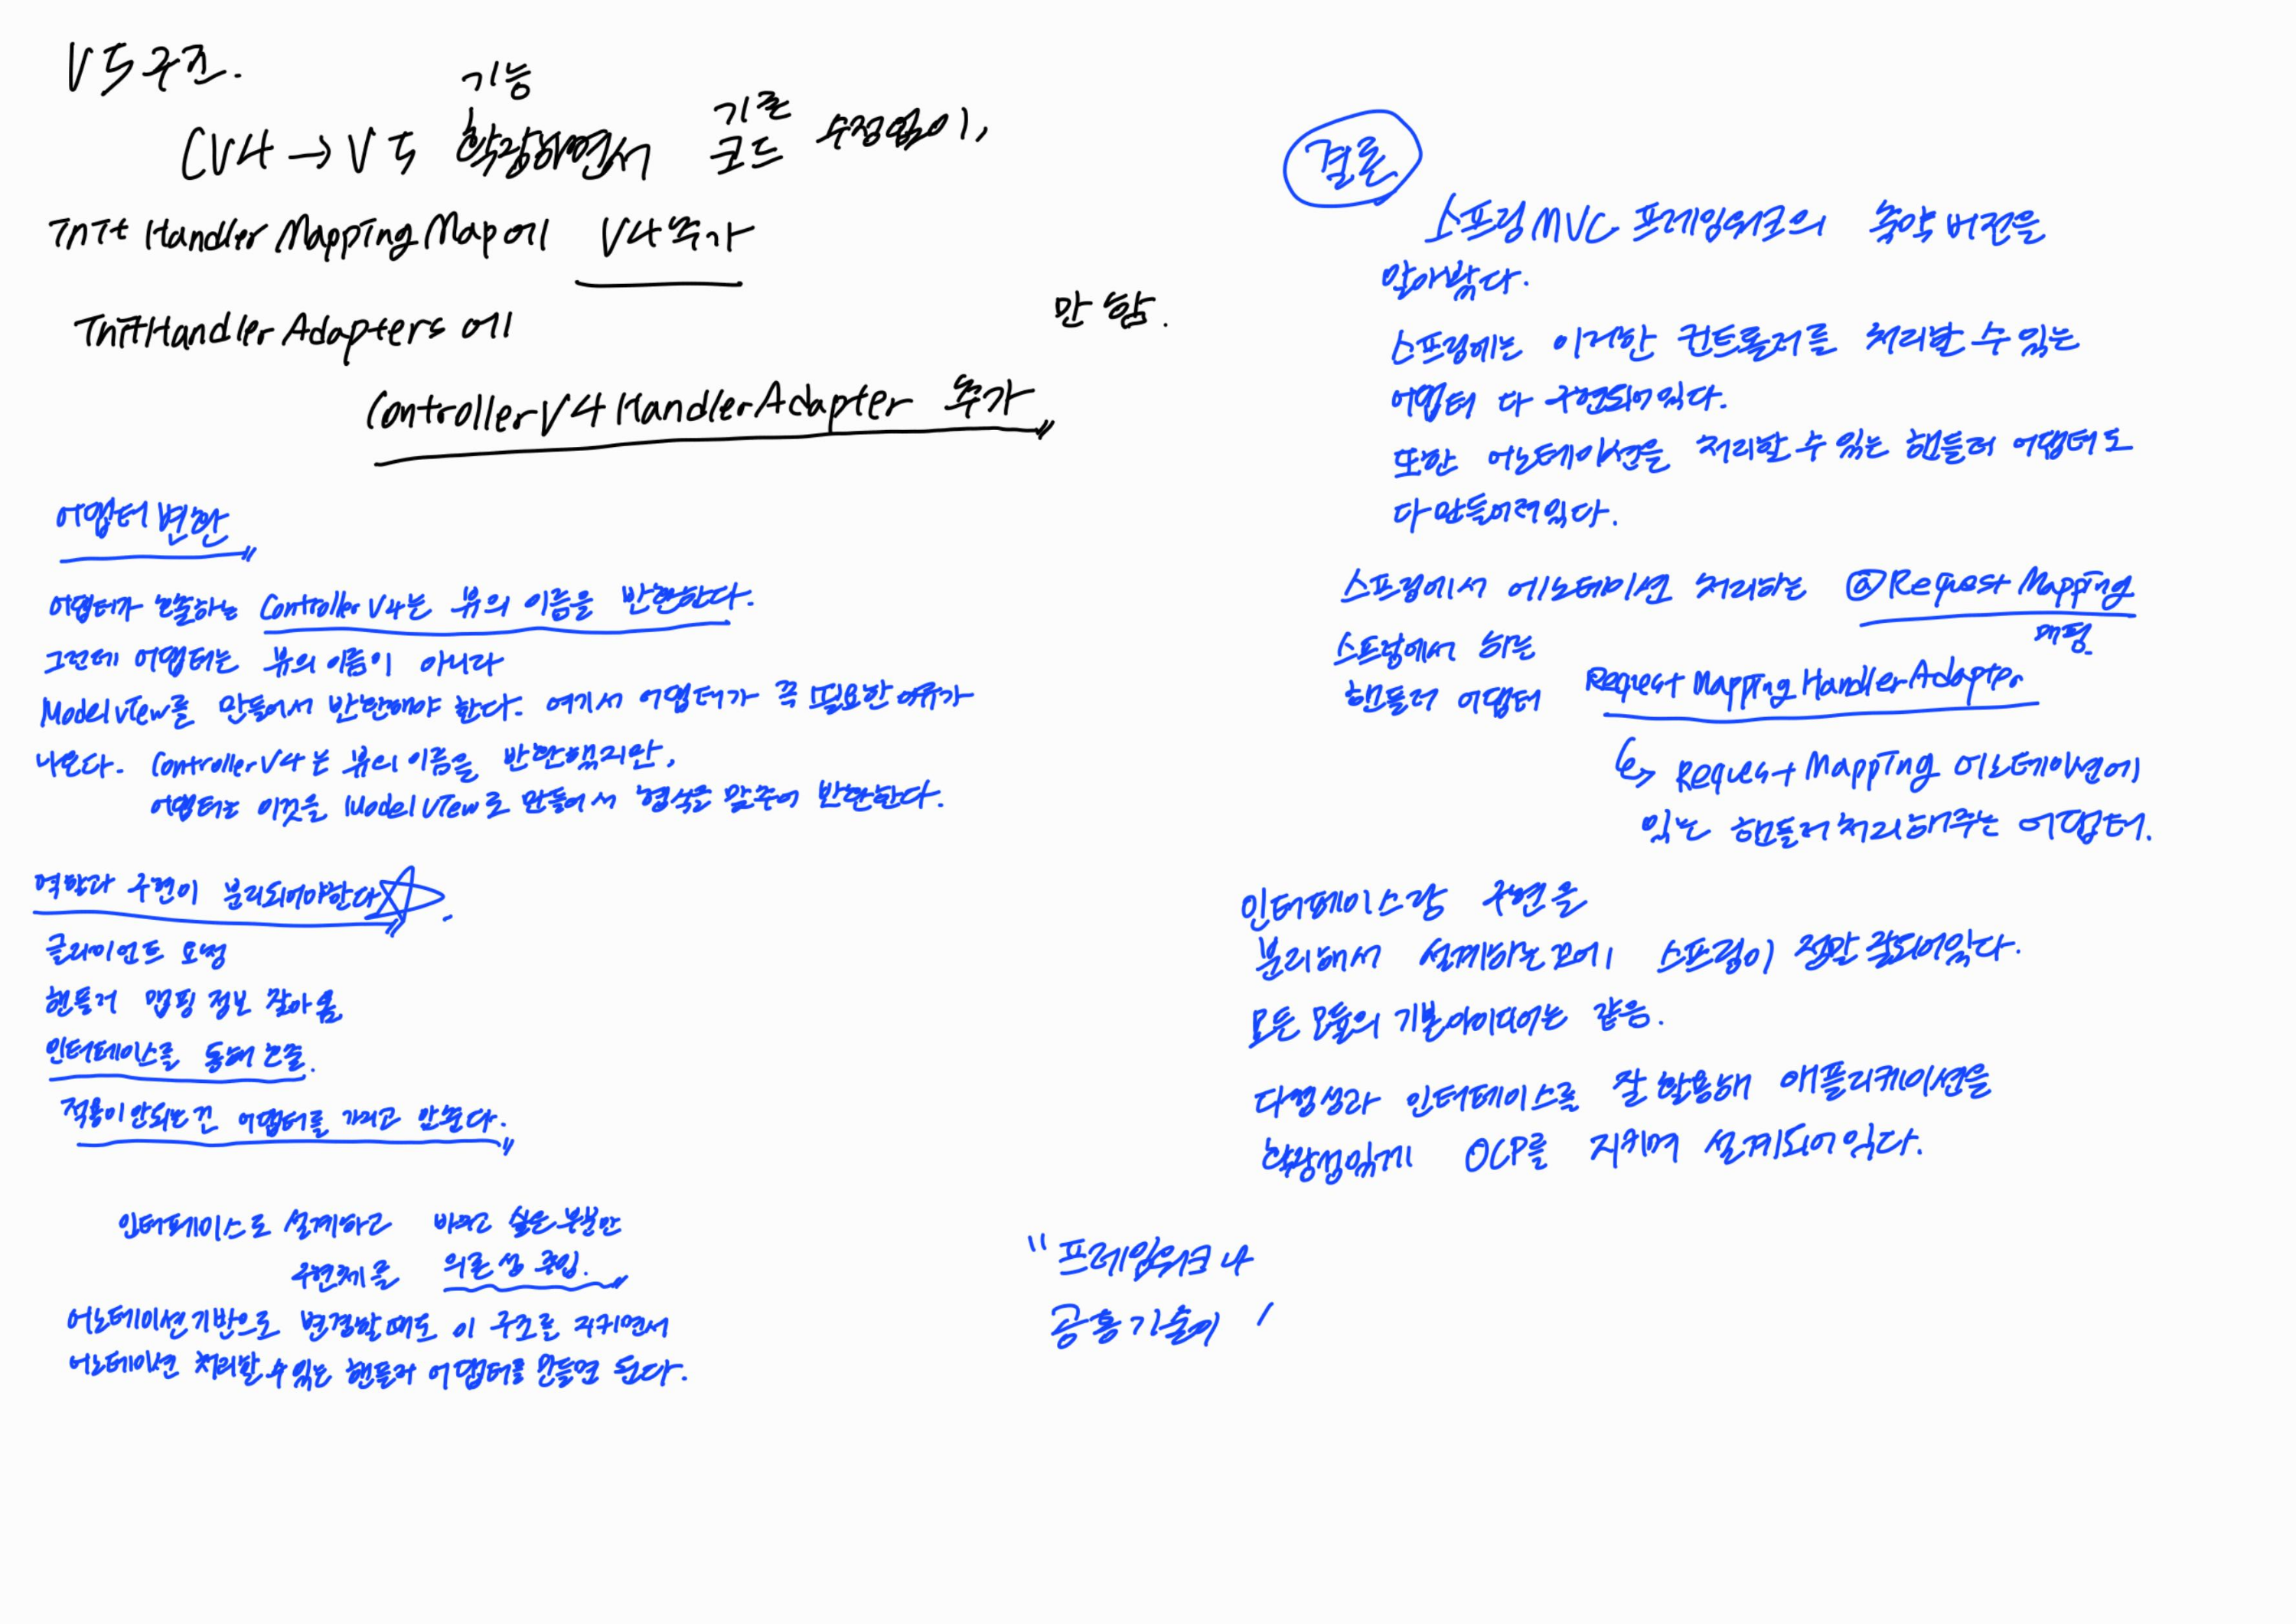 V5 구조.
CV4 → V5 기능 확장하면서 기존 코드 수정없이,
Init Handler Mapping Map에 V4 추가
InitHandlerAdapters 에
만 함.
ControllerV4HandlerAdapter 추가
어댑터 변환
어댑터가 호출하는 Controller V4는 뷰의 이름을 반환한다.
그런데 어댑터는 뷰의 이름이 아니라
Modelview를 만들어서 반환해야 한다. 여기서 어댑터가 꼭 필요한 이유가
나온다. Controller V4는 뷰의 이름을 반환했지만,
어댑터는 이것을 Model View로 만들어서 형식을 맞추어 반환한다.
역할과 구현이 분리되어야한다 ☆.
클라이언트 요청
핸들러 맵핑 정보 찾아옴
인터페이스를 통해 호출.
적용이 안되는건 어댑터를 가지고 맞춘다.
인터페이스로 설계하고 바꾸고 싶은 부분만
구현체를 의존성 주입.
어노테이션기반으로 변경할때도 이 구조를 지키면서
어노테이션 처리할 수 있는 핸들러 어댑터를 만들면 된다.
결론
스프링 MVC 프레임워크의 축약 버전을
알아봤다.
스프링에는 이러한 컨트롤러를 처리할 수 있는
어댑터 다 구현되어 있다.
또한 어노테이션을 처리할 수 있는 핸들러 어댑터도
다 만들어져있다.
스프링에서 에노테이션 처리하는 @Request Mapping
매핑
스프링에서 하는
핸들러 어댑터 Request Mapping Handler Adapter
↳ Request Mapping 에노테이션에
있는 핸들러 처리해주는 어댑터.
인터페이스랑 구현을
분리해서 설계하는 꼬에 스프링이 정말 잘되어있다.
모든 모듈의 기본아이디어는 같음.
다형성과 인터페이스를 잘 활용해 애플리케이션을
확장성있게 OCP를 지키며 설계되어있다.
" 프레임워크나
공통기술이 /